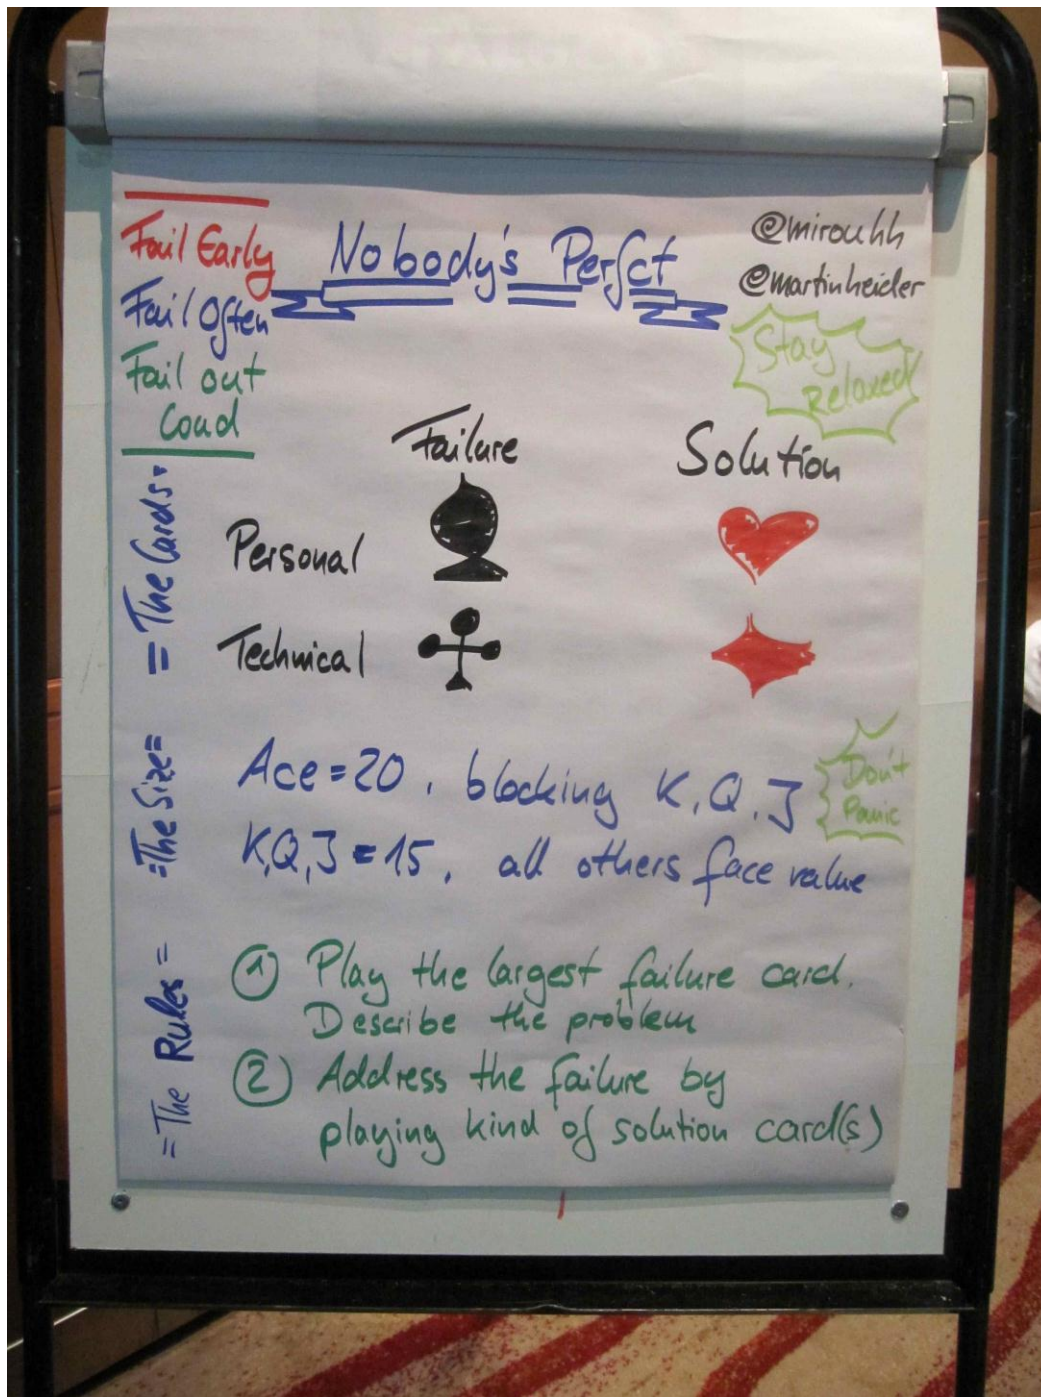 Fail Early
Fail Often
Fail out
Loud
Nobody's Perfct
@mirouhh
@martinheider
Stay
Relaxed
=The Cards=
Failure
Solution
Personal
Technical
=The Size=
Ace=20, blocking K,Q,J
K,Q,J=15, all others face value
Don't
Panic
=The Rules=
① Play the largest failure card.
Describe the problem
② Address the failure by
playing kind of solution card(s)